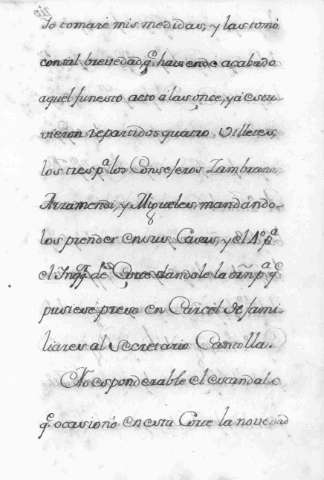 Yo tomaré mis medidas, y las tomó
con tal brevedad q.e haviendo acabado
aquel funesto acto à las once, yà estu-
vieron repartidos quatro Villetes,
los tres p.a los Consejeros Zambrano
Arzamendi, y Miguelez, mandándo-
los prender en sus Casas, y el 4.o p.a
el Inq.or de Corte dandole la orñ p.a q.e
pusiese preso en Carcel de fami-
liares al Secretario Cantolla.
No es ponderable el escandalo
q.e ocasionó en esta Corte la novedad